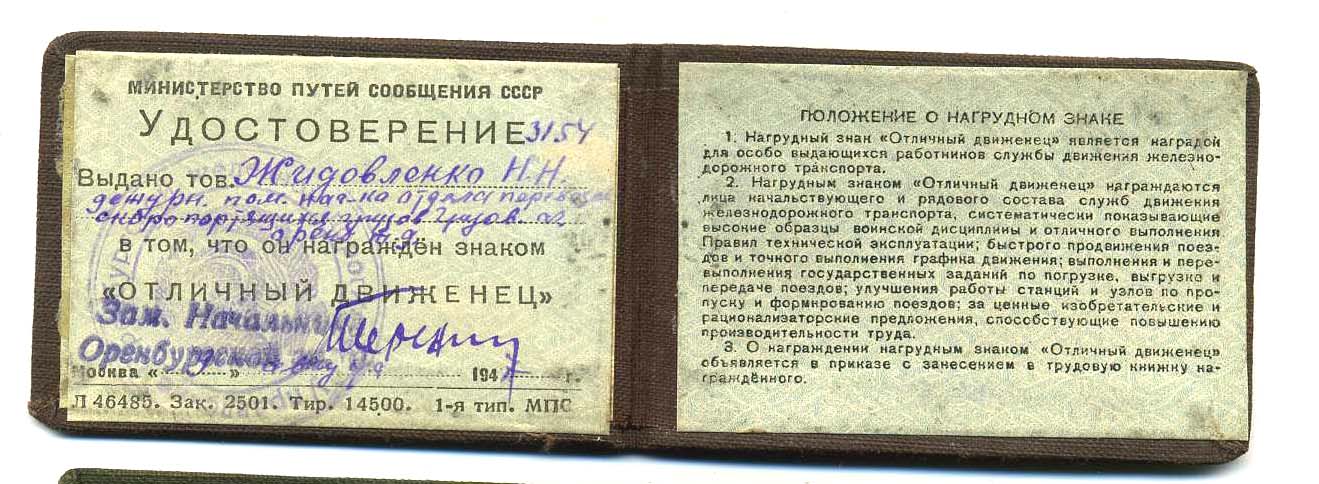 МИНИСТЕРСТВО ПУТЕЙ СООБЩЕНИЯ СССР
УДОСТОВЕРЕНИЕ 3154
Выдано тов. Жидовленко Н.Н.
дежурн. пом. нач-ка отдела перевозок
скоропортящихся грузов Грузов.
в том, что он награждён знаком
«ОТЛИЧНЫЙ ДВИЖЕНЕЦ»
Зам. Начальника
Оренбургской
Москва « » 194 г.
Л 46485. Зак. 2501. Тир. 14500. 1-я тип. МПС
ПОЛОЖЕНИЕ О НАГРУДНОМ ЗНАКЕ
1. Нагрудный знак «Отличный движенец» является наградой
для особо выдающихся работников службы движения железно-
дорожного транспорта.
2. Нагрудным знаком «Отличный движенец» награждаются
лица начальствующего и рядового состава служб движения
железнодорожного транспорта, систематически показывающие
высокие образцы воинской дисциплины и отличного выполнения
Правил технической эксплуатации; быстрого продвижения поез-
дов и точного выполнения графика движения; выполнения и пере-
выполнения государственных заданий по погрузке, выгрузке и
передаче поездов; улучшения работы станций и узлов по про-
пуску и формированию поездов; за ценные изобретательские и
рационализаторские предложения, способствующие повышению
производительности труда.
3. О награждении нагрудным знаком «Отличный движенец»
объявляется в приказе с занесением в трудовую книжку на-
граждённого.